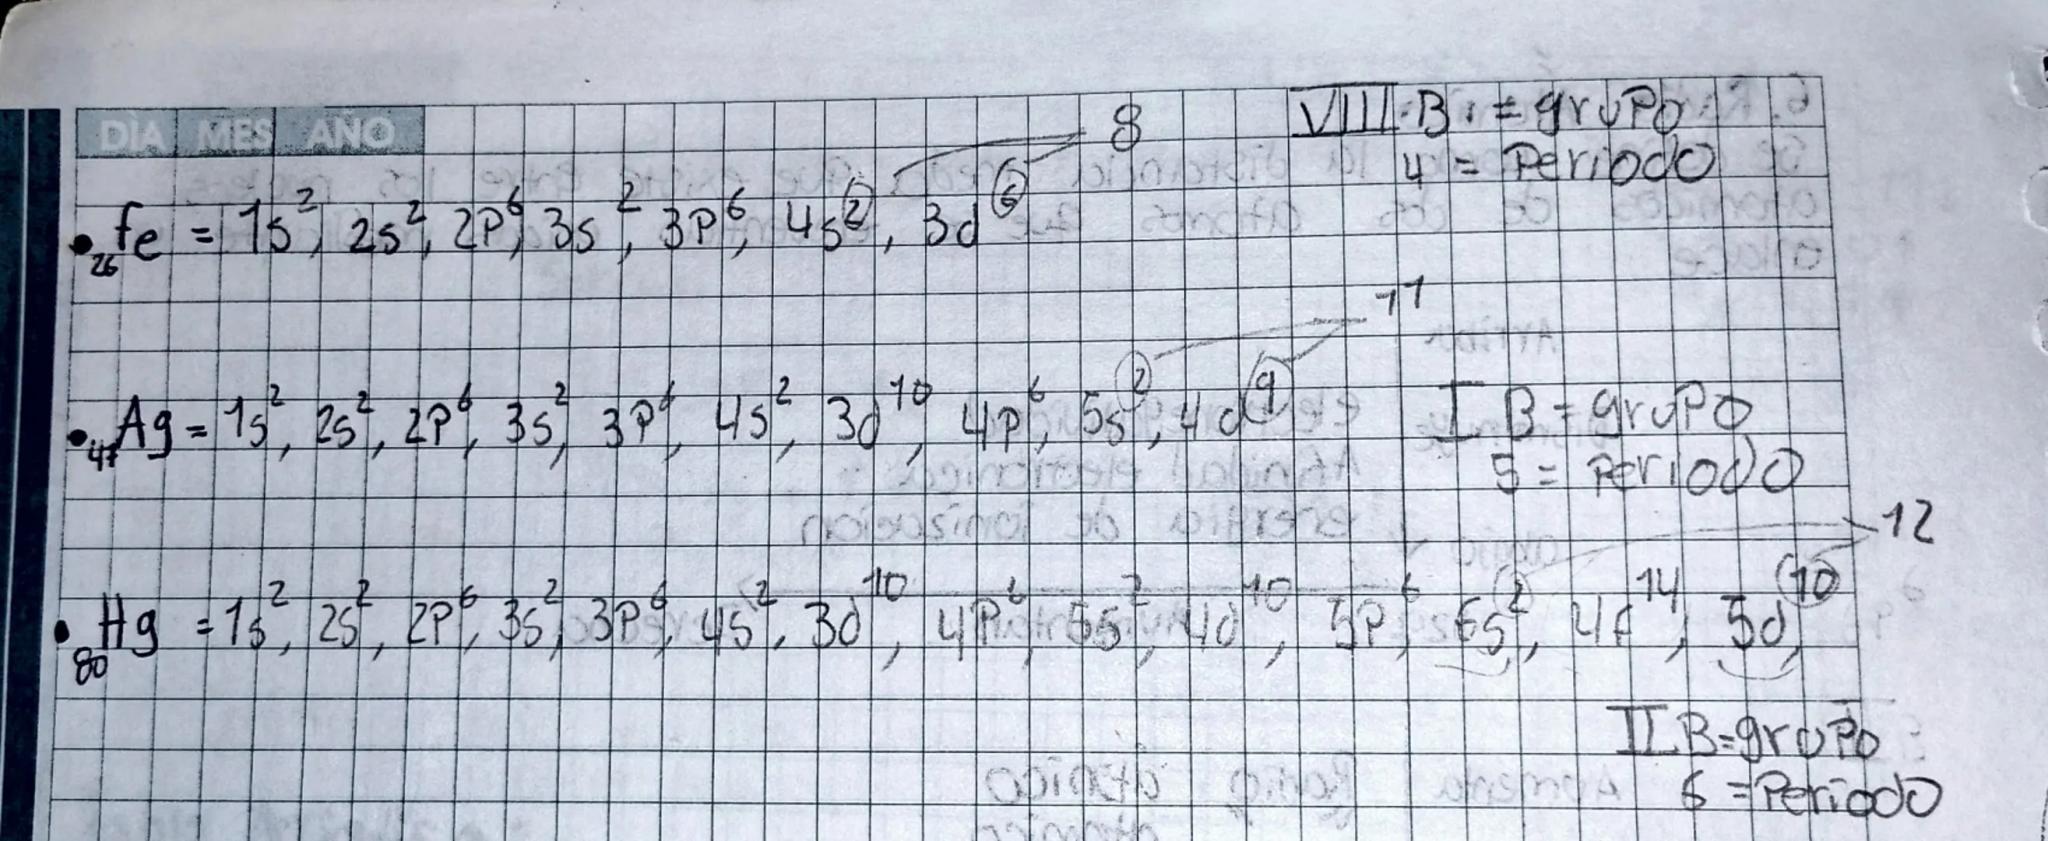 DÌA MES AÑO
8
VIII B. = grupo
4 = Periodo
• 26 fe = 1s², 2s², 2P⁶, 3s², 3P⁶, 4s², 3d⁶
11
• 47 Ag = 1s², 2s², 2P⁶, 3s², 3P⁶, 4s², 3d¹⁰, 4p⁶, 5s², 4d⁹
I B = grupo
5 = Periodo
12
• 80 Hg = 1s², 2s², 2P⁶, 3s², 3P⁶, 4s², 3d¹⁰, 4P⁶, 5s², 4d¹⁰, 5P⁶, 6s², 4f¹⁴, 5d¹⁰
II B = grupo
6 = Periodo